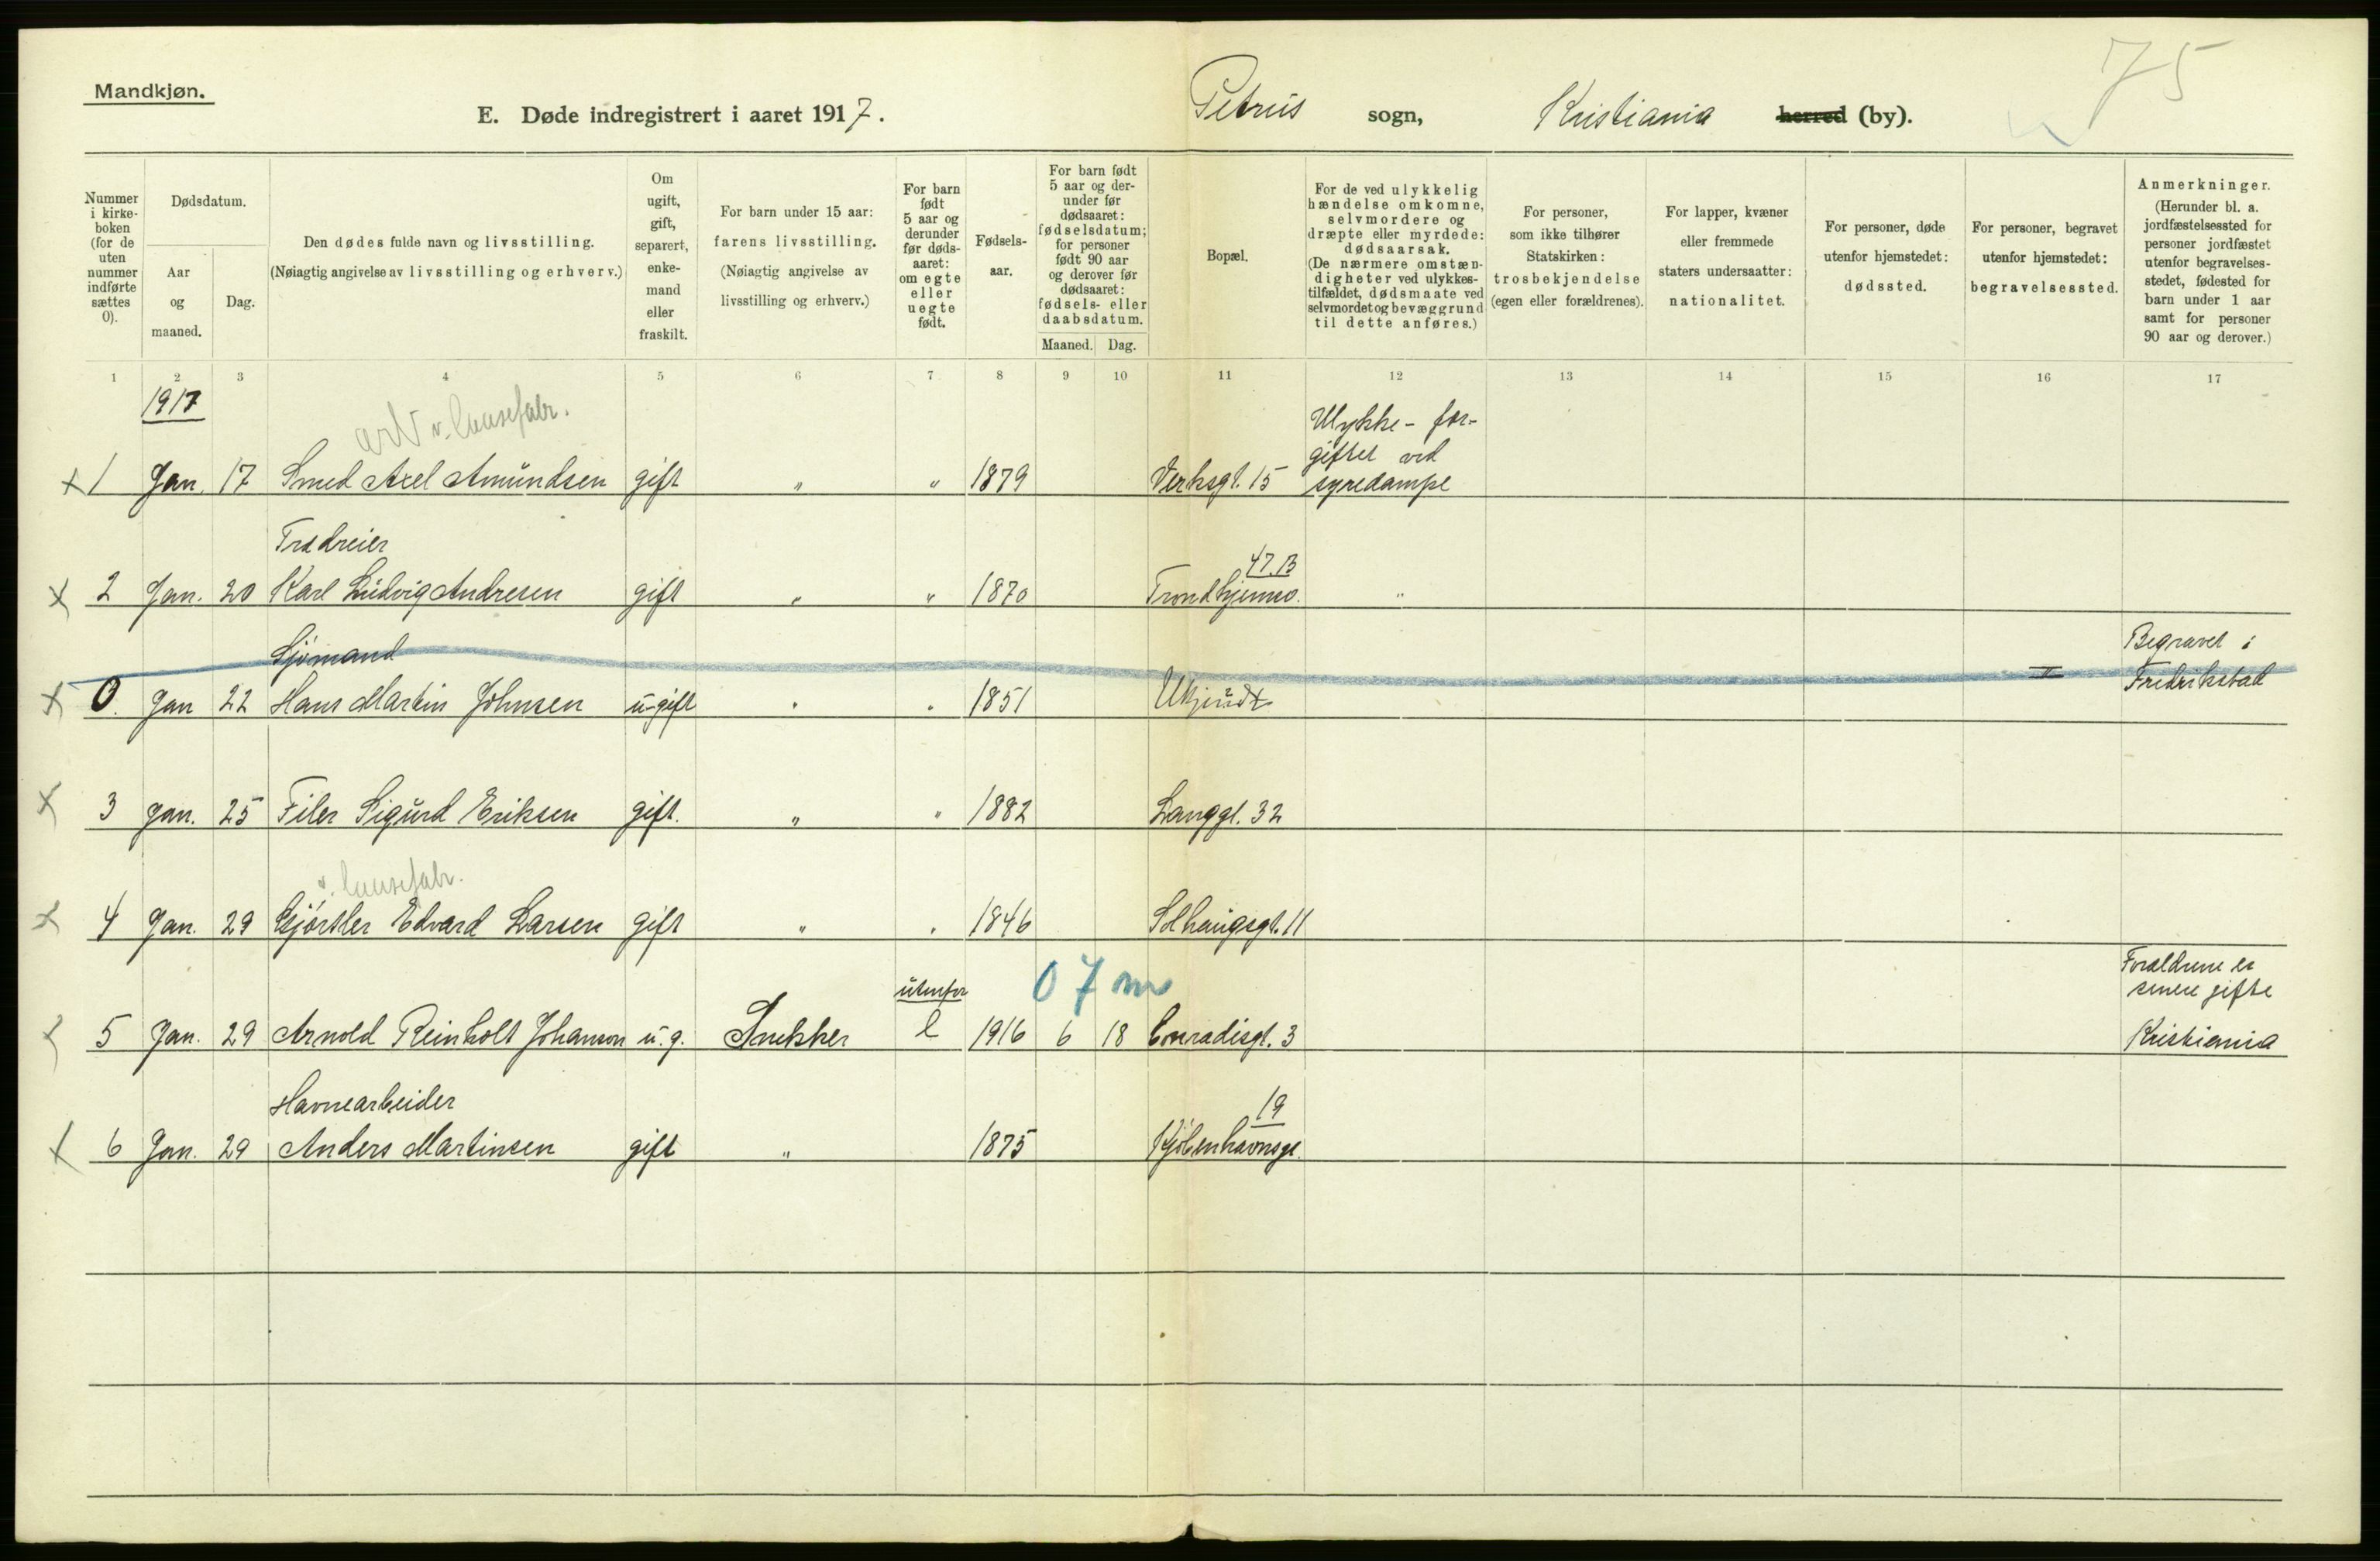 75
Mandkjøn.
E. Døde indregistrert i aaret 1917. Petrus sogn, Kristiania herred (by).
Nummer i kirke- boken (for de uten nummer indførte sættes 0).
Dødsdatum.
Aar og maaned.
Dag.
Den dødes fulde navn og livsstilling.
(Nøiagtig angivelse av livsstilling og erhverv.)
Om ugift, gift, separert, enke- mand eller fraskilt.
For barn under 15 aar: farens livsstilling.
(Nøiagtig angivelse av livsstilling og erhverv.)
For barn født 5 aar og derunder før døds- aaret: om egte eller uegte født.
Fødsels- aar.
For barn født 5 aar og der- under før dødsaaret: fødselsdatum; for personer født 90 aar og derover før dødsaaret: fødsels- eller daabsdatum.
Maaned. Dag.
Bopæl.
For de ved ulykkelig hændelse omkomne, selvmordere og dræpte eller myrdede: dødsaarsak.
(De nærmere omstæn- digheter ved ulykkes- tilfældet, dødsmaate ved selvmordet og bevæggrund til dette anføres.)
For personer, som ikke tilhører Statskirken: trosbekjendelse (egen eller forældrenes).
For lapper, kvæner eller fremmede staters undersaatter: nationalitet.
For personer, døde utenfor hjemstedet: dødssted.
For personer, begravet utenfor hjemstedet: begravelsessted.
Anmerkninger.
(Herunder bl. a. jordfæstelsessted for personer jordfæstet utenfor begravelses- stedet, fødested for barn under 1 aar samt for personer 90 aar og derover.)
1 2 3 4 5 6 7 8 9 10 11 12 13 14 15 16 17
1917
Ulykke - for-
giftet ved
x 1 Jan. 17 Smed Axel Amundsen gift " " 1879 Verksgt. 15 syredampe
Trædreier 47.B
x 2 Jan. 20 Karl Ludvig Andresen gift " " 1870 Trondhjemsv. "
Sjømand Begravet i
Fredrikstad
x 0. Jan 22 Hans Martin Johnsen ugift " " 1851 Ukjendt
x 3 Jan. 25 Filer Sigurd Eriksen gift. " " 1882 Langgt. 32
x 4 Jan. 29 Gjørtler Edvard Larsen gift " " 1846 Solhaugsgt. 11
07m Forældrene er
utenfor senere gifte
x 5 Jan. 29 Arnold Reinholt Johanson u.g. Snekker 1916 6 18 Conradisgt. 3 Kristiania
Havnearbeider 19
x 6 Jan. 29 Anders Martinsen gift " 1875 Kjøbenhavnsgt.